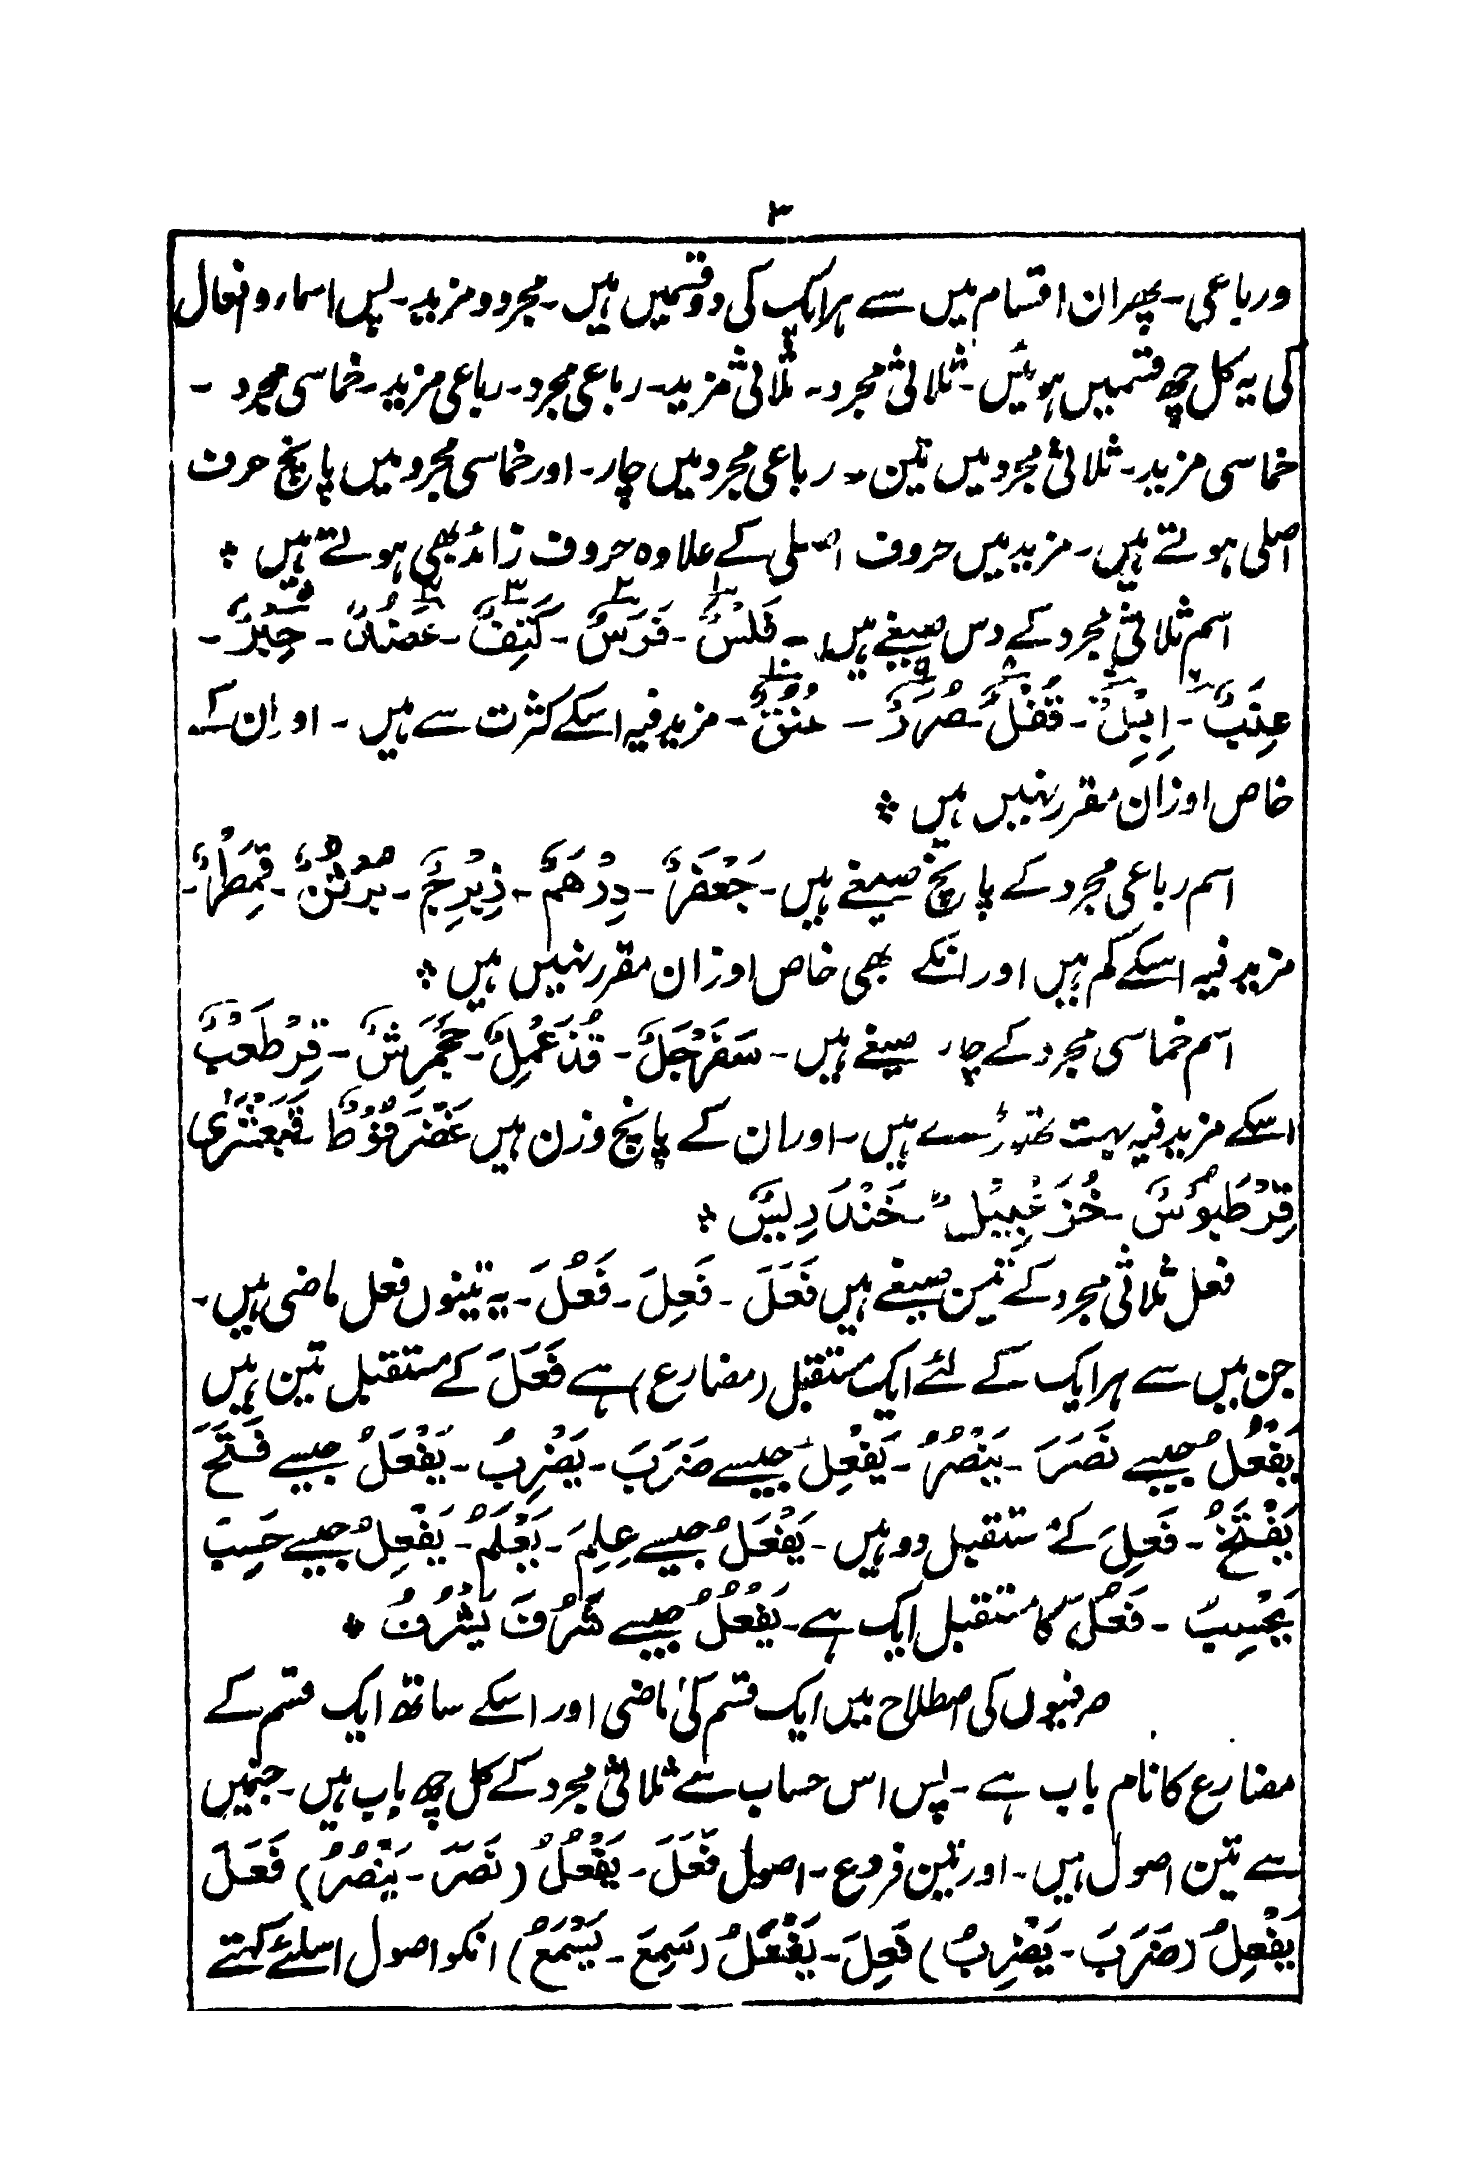 ۳
ورباعی۔ پھر ان اقسام میں سے ہرایک کی دو قسمیں ہیں۔ مجرد و مزید۔ پس اسماء و افعال
کی یہ کل چھ قسمیں ہوئیں۔ ثلاثی مجرد۔ ثلاثی مزید۔ رباعی مجرد۔ رباعی مزید۔ خماسی مجرد۔
خماسی مزید۔ ثلاثی مجرد میں تین۔ رباعی مجرد میں چار۔ اور خماسی مجرد میں پانچ حرف
اصلی ہوتے ہیں۔ مزید میں حروف اصلی کے علاوہ حروف زائد بھی ہوتے ہیں ❖
اسم ثلاثی مجرد کے دس صیغے ہیں۔ فَلْسٌ۱۔ فَرَسٌ۲۔ کَتِفٌ۳۔ عَضُدٌ۴۔ حِبْرٌ۵۔
عِنَبٌ۶۔ اِبِلٌ۷۔ قُفْلٌ۸۔ صُرَدٌ۹۔ عُنُقٌ۱۰۔ مزید فیہ اسکے کثرت سے ہیں۔ او اِن کے
خاص اوزان مقرر نہیں ہیں ❖
اسم رباعی مجرد کے پانچ صیغے ہیں۔ جَعْفَرٌ۔ دِرْهَمٌ۔ زِبْرِجٌ۔ بُرْثُنٌ۔ قِمَطْرٌ۔
مزید فیہ اسکے کم ہیں اور انکے بھی خاص اوزان مقرر نہیں ہیں ❖
اسم خماسی مجرد کے چار صیغے ہیں۔ سَفَرْجَلٌ۔ قُذَعْمِلٌ۔ جَحْمَرِشٌ۔ قِرْطَعْبٌ
اسکے مزید فیہ بہت تھوڑے سے ہیں۔ اور ان کے پانچ وزن ہیں عَضْرَفُوْطٌ قَبَعْثَرٰی
قِرْطَبُوْسٌ۔ خُزَعْبِیْلٌ۔ خَنْدَرِیْسٌ ❖
فعل ثلاثی مجرد کے تین صیغے ہیں فَعَلَ۔ فَعِلَ۔ فَعُلَ۔ یہ تینوں فعل ماضی ہیں۔
جن میں سے ہر ایک کے لئے ایک مستقبل (مضارع) ہے فَعَلَ کے مستقبل تین ہیں
یَفْعُلُ جیسے نَصَرَ۔ یَنْصُرُ۔ یَفْعِلُ جیسے ضَرَبَ۔ یَضْرِبُ۔ یَفْعَلُ جیسے فَتَحَ
یَفْتَحُ۔ فَعِلَ کے مستقبل دو ہیں۔ یَفْعَلُ جیسے عِلِمَ۔ یَعْلَمُ۔ یَفْعِلُ جیسے حَسِبَ
یَحْسِبُ۔ فَعُلَ کا مستقبل ایک ہے۔ یَفْعُلُ جیسے شَرُفَ یَشْرُفُ ❖
صرفیوں کی اصطلاح میں ایک قسم کی ماضی اور اسکے ساتھ ایک قسم کے
مضارع کا نام باب ہے۔ پس اس حساب سے ثلاثی مجرد کے کل چھ باب ہیں۔ جنمیں
سے تین اصول ہیں۔ اور تین فروع۔ اصول فَعَلَ۔ یَفْعُلُ (نَصَرَ۔ یَنْصُرُ) فَعَلَ
یَفْعِلُ (ضَرَبَ۔ یَضْرِبُ) فَعِلَ۔ یَفْعَلُ (سَمِعَ۔ یَسْمَعُ) انکو اصول اسلئے کہتے